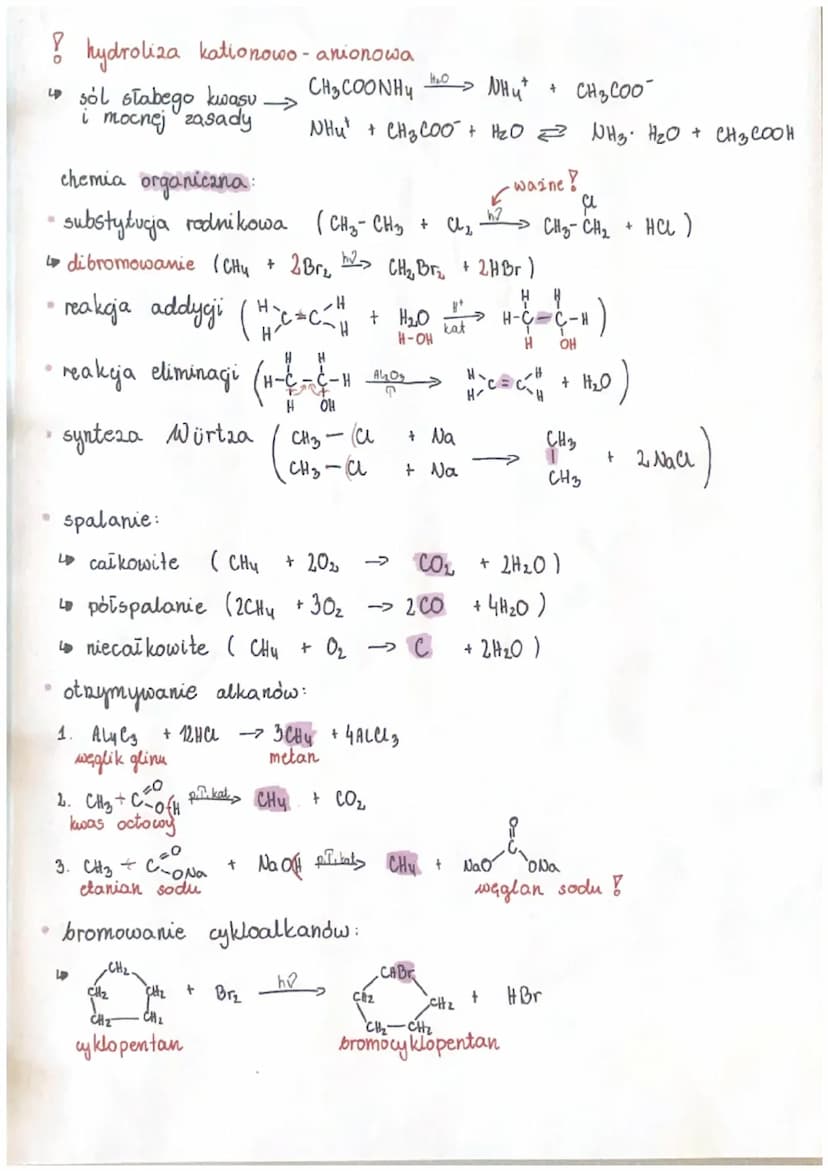 ! hydroliza kationowo-anionowa
↳ sól słabego kwasu i mocnej zasady → CH₃COONH₄ —H₂O→ NH₄⁺ + CH₃COO⁻
NH₄⁺ + CH₃COO⁻ + H₂O ⇄ NH₃·H₂O + CH₃COOH
chemia organiczna:
ważne!
• substytucja rodnikowa (CH₃-CH₃ + Cl₂ —hν→ CH₃-CH₂Cl + HCl)
↳ dibromowanie (CH₄ + 2Br₂ —hν→ CH₂Br₂ + 2HBr)
• reakcja addycji (H₂C=CH₂ + H₂O —H⁺ kat→ H-CH₂-CH(OH)-H)
H-OH
• reakcja eliminacji (H-CH₂-CH(OH)-H —Al₂O₃ T→ H₂C=CH₂ + H₂O)
• synteza Würtza (CH₃-Cl + Na
CH₃-Cl + Na → CH₃-CH₃ + 2NaCl)
• spalanie:
↳ całkowite (CH₄ + 2O₂ → CO₂ + 2H₂O)
↳ półspalanie (2CH₄ + 3O₂ → 2CO + 4H₂O)
↳ niecałkowite (CH₄ + O₂ → C + 2H₂O)
• otrzymywanie alkanów:
1. Al₄C₃ + 12HCl → 3CH₄ + 4AlCl₃
węglik glinu metan
2. CH₃-C(=O)-OH —p.T.kat→ CH₄ + CO₂
kwas octowy
3. CH₃-C(=O)-ONa + NaOH —p.T.kat→ CH₄ + NaO-C(=O)-ONa
etanian sodu węglan sodu!
• bromowanie cykloalkanów:
↳ CH₂ CH₂ CH₂ CH₂ CH₂ + Br₂ —hν→ CHBr CH₂ CH₂ CH₂ CH₂ + HBr
cyklopentan bromocyklopentan